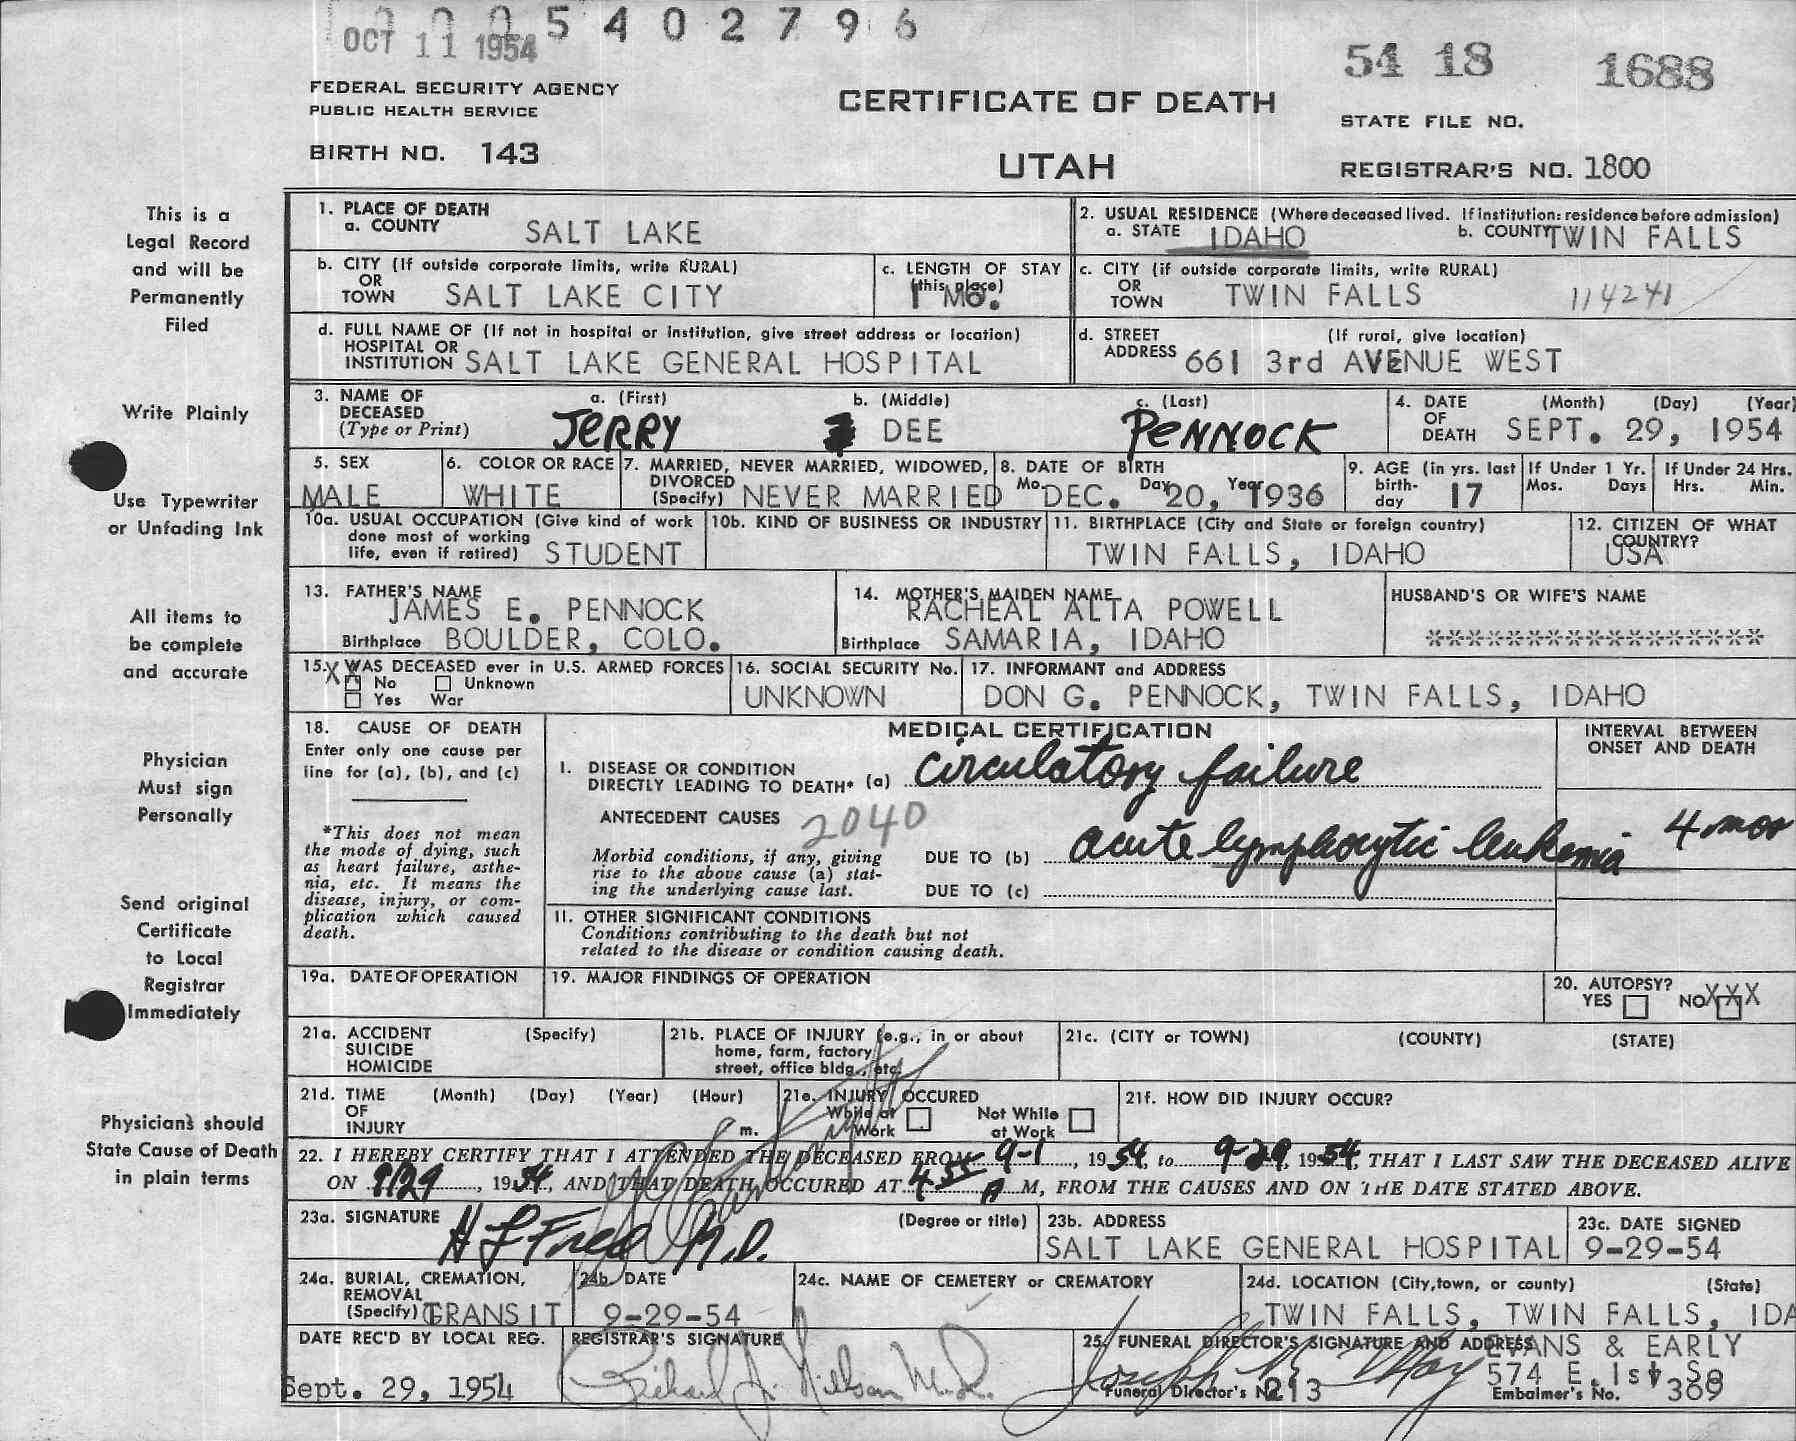 0005402796
OCT 11 1954
54 18 1688
FEDERAL SECURITY AGENCY
PUBLIC HEALTH SERVICE
CERTIFICATE OF DEATH
STATE FILE NO.
BIRTH NO. 143
UTAH
REGISTRAR'S NO. 1800
This is a
Legal Record
and will be
Permanently
Filed
Write Plainly
Use Typewriter
or Unfading Ink
All items to
be complete
and accurate
Physician
Must sign
Personally
Send original
Certificate
to Local
Registrar
Immediately
Physicians should
State Cause of Death
in plain terms
1. PLACE OF DEATH
a. COUNTY SALT LAKE
2. USUAL RESIDENCE (Where deceased lived. If institution: residence before admission)
a. STATE IDAHO b. COUNTY TWIN FALLS
b. CITY (If outside corporate limits, write RURAL)
OR
TOWN SALT LAKE CITY
c. LENGTH OF STAY
(this place)
1 MO.
c. CITY (if outside corporate limits, write RURAL)
OR
TOWN TWIN FALLS 114241
d. FULL NAME OF (If not in hospital or institution, give street address or location)
HOSPITAL OR
INSTITUTION SALT LAKE GENERAL HOSPITAL
d. STREET (If rural, give location)
ADDRESS 661 3rd AVENUE WEST
3. NAME OF a. (First) b. (Middle) c. (Last)
DECEASED
(Type or Print) JERRY DEE PENNOCK
4. DATE (Month) (Day) (Year)
OF
DEATH SEPT. 29, 1954
5. SEX
MALE
6. COLOR OR RACE
WHITE
7. MARRIED, NEVER MARRIED, WIDOWED,
DIVORCED
(Specify) NEVER MARRIED
8. DATE OF BIRTH
Mo. DEC. Day 20, Year 1936
9. AGE (in yrs. last
birth-
day 17
If Under 1 Yr.
Mos. Days
If Under 24 Hrs.
Hrs. Min.
10a. USUAL OCCUPATION (Give kind of work
done most of working
life, even if retired) STUDENT
10b. KIND OF BUSINESS OR INDUSTRY
11. BIRTHPLACE (City and State or foreign country)
TWIN FALLS, IDAHO
12. CITIZEN OF WHAT
COUNTRY?
USA
13. FATHER'S NAME
JAMES E. PENNOCK
Birthplace BOULDER, COLO.
14. MOTHER'S MAIDEN NAME
RACHEAL ALTA POWELL
Birthplace SAMARIA, IDAHO
HUSBAND'S OR WIFE'S NAME
*****************
15. WAS DECEASED ever in U.S. ARMED FORCES
XX No Unknown
Yes War
16. SOCIAL SECURITY No.
UNKNOWN
17. INFORMANT and ADDRESS
DON G. PENNOCK, TWIN FALLS, IDAHO
18. CAUSE OF DEATH
Enter only one cause per
line for (a), (b), and (c)
*This does not mean
the mode of dying, such
as heart failure, asthe-
nia, etc. It means the
disease, injury, or com-
plication which caused
death.
MEDICAL CERTIFICATION
INTERVAL BETWEEN
ONSET AND DEATH
I. DISEASE OR CONDITION
DIRECTLY LEADING TO DEATH* (a) circulatory failure
ANTECEDENT CAUSES 2040
Morbid conditions, if any, giving
rise to the above cause (a) stat-
ing the underlying cause last.
DUE TO (b) acute lymphocytic leukemia 4 mos
DUE TO (c)
II. OTHER SIGNIFICANT CONDITIONS
Conditions contributing to the death but not
related to the disease or condition causing death.
19a. DATE OF OPERATION
19. MAJOR FINDINGS OF OPERATION
20. AUTOPSY?
YES NO XXX
21a. ACCIDENT (Specify)
SUICIDE
HOMICIDE
21b. PLACE OF INJURY (e.g., in or about
home, farm, factory
street, office bldg., etc.
21c. (CITY or TOWN) (COUNTY) (STATE)
21d. TIME (Month) (Day) (Year) (Hour)
OF
INJURY m.
21e. INJURY OCCURED
While at Work Not While at Work
21f. HOW DID INJURY OCCUR?
22. I HEREBY CERTIFY THAT I ATTENDED THE DECEASED FROM 9-1, 1954, to 9-29, 1954, THAT I LAST SAW THE DECEASED ALIVE
ON 9/29, 1954, AND THAT DEATH OCCURED AT 4 55 A M, FROM THE CAUSES AND ON THE DATE STATED ABOVE.
23a. SIGNATURE (Degree or title)
M.D.
23b. ADDRESS
SALT LAKE GENERAL HOSPITAL
23c. DATE SIGNED
9-29-54
24a. BURIAL, CREMATION,
REMOVAL
(Specify) TRANSIT
24b. DATE
9-29-54
24c. NAME OF CEMETERY or CREMATORY
24d. LOCATION (City, town, or county) (State)
TWIN FALLS, TWIN FALLS, IDA
DATE REC'D BY LOCAL REG.
Sept. 29, 1954
REGISTRAR'S SIGNATURE
Richard
25. FUNERAL DIRECTOR'S SIGNATURE AND ADDRESS
EVANS & EARLY
Joseph
574 E. 1st So
Funeral Director's No. 213 Embalmer's No. 369